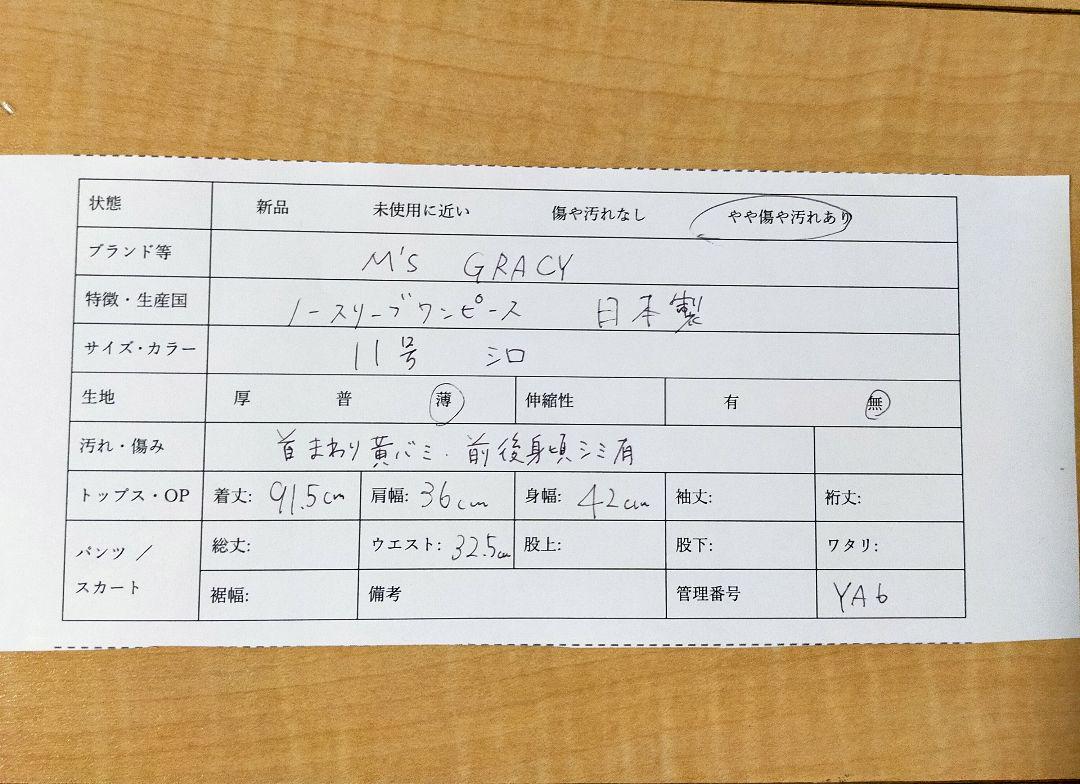 状態 新品 未使用に近い 傷や汚れなし やや傷や汚れあり
ブランド等 M'S GRACY
特徴・生産国 ノースリーブワンピース 日本製
サイズ・カラー 11号 シロ
生地 厚 普 薄 伸縮性 有 無
汚れ・傷み 首まわり黄バミ・前後身頃シミ有
トップス・OP 着丈: 91.5cm 肩幅: 36cm 身幅: 42cm 袖丈: 裄丈:
パンツ / スカート 総丈: ウエスト: 32.5cm 股上: 股下: ワタリ:
裾幅: 備考 管理番号 YA6